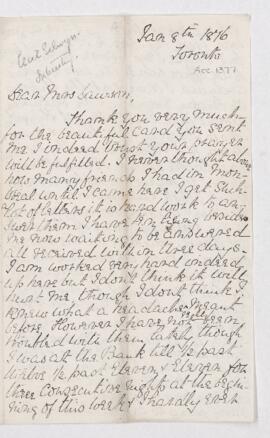 Jan 8th 1876
Toronto
Acc. 1377
Dear Mrs Dawson,
Thank you very much
for the beautiful card you sent
me I indeed trust your prayer
will be fulfilled. I never thought about
how many friends I had in Mon-
treal until I came here I get such
lot of letters it is hard work to ans
wer them I have
me now waiting to be answered
all received within three days-
I am worked very hard indeed
up here but I don't think it will
hurt me, though I don't think I
knew what a headache meant
before. However I have not been
really
troubled with them lately though
I was at the Bank till ½ past
twelve ½ past Eleven & Eleven for
three consecutive nights at the begin
ning of this week & I hardly ever